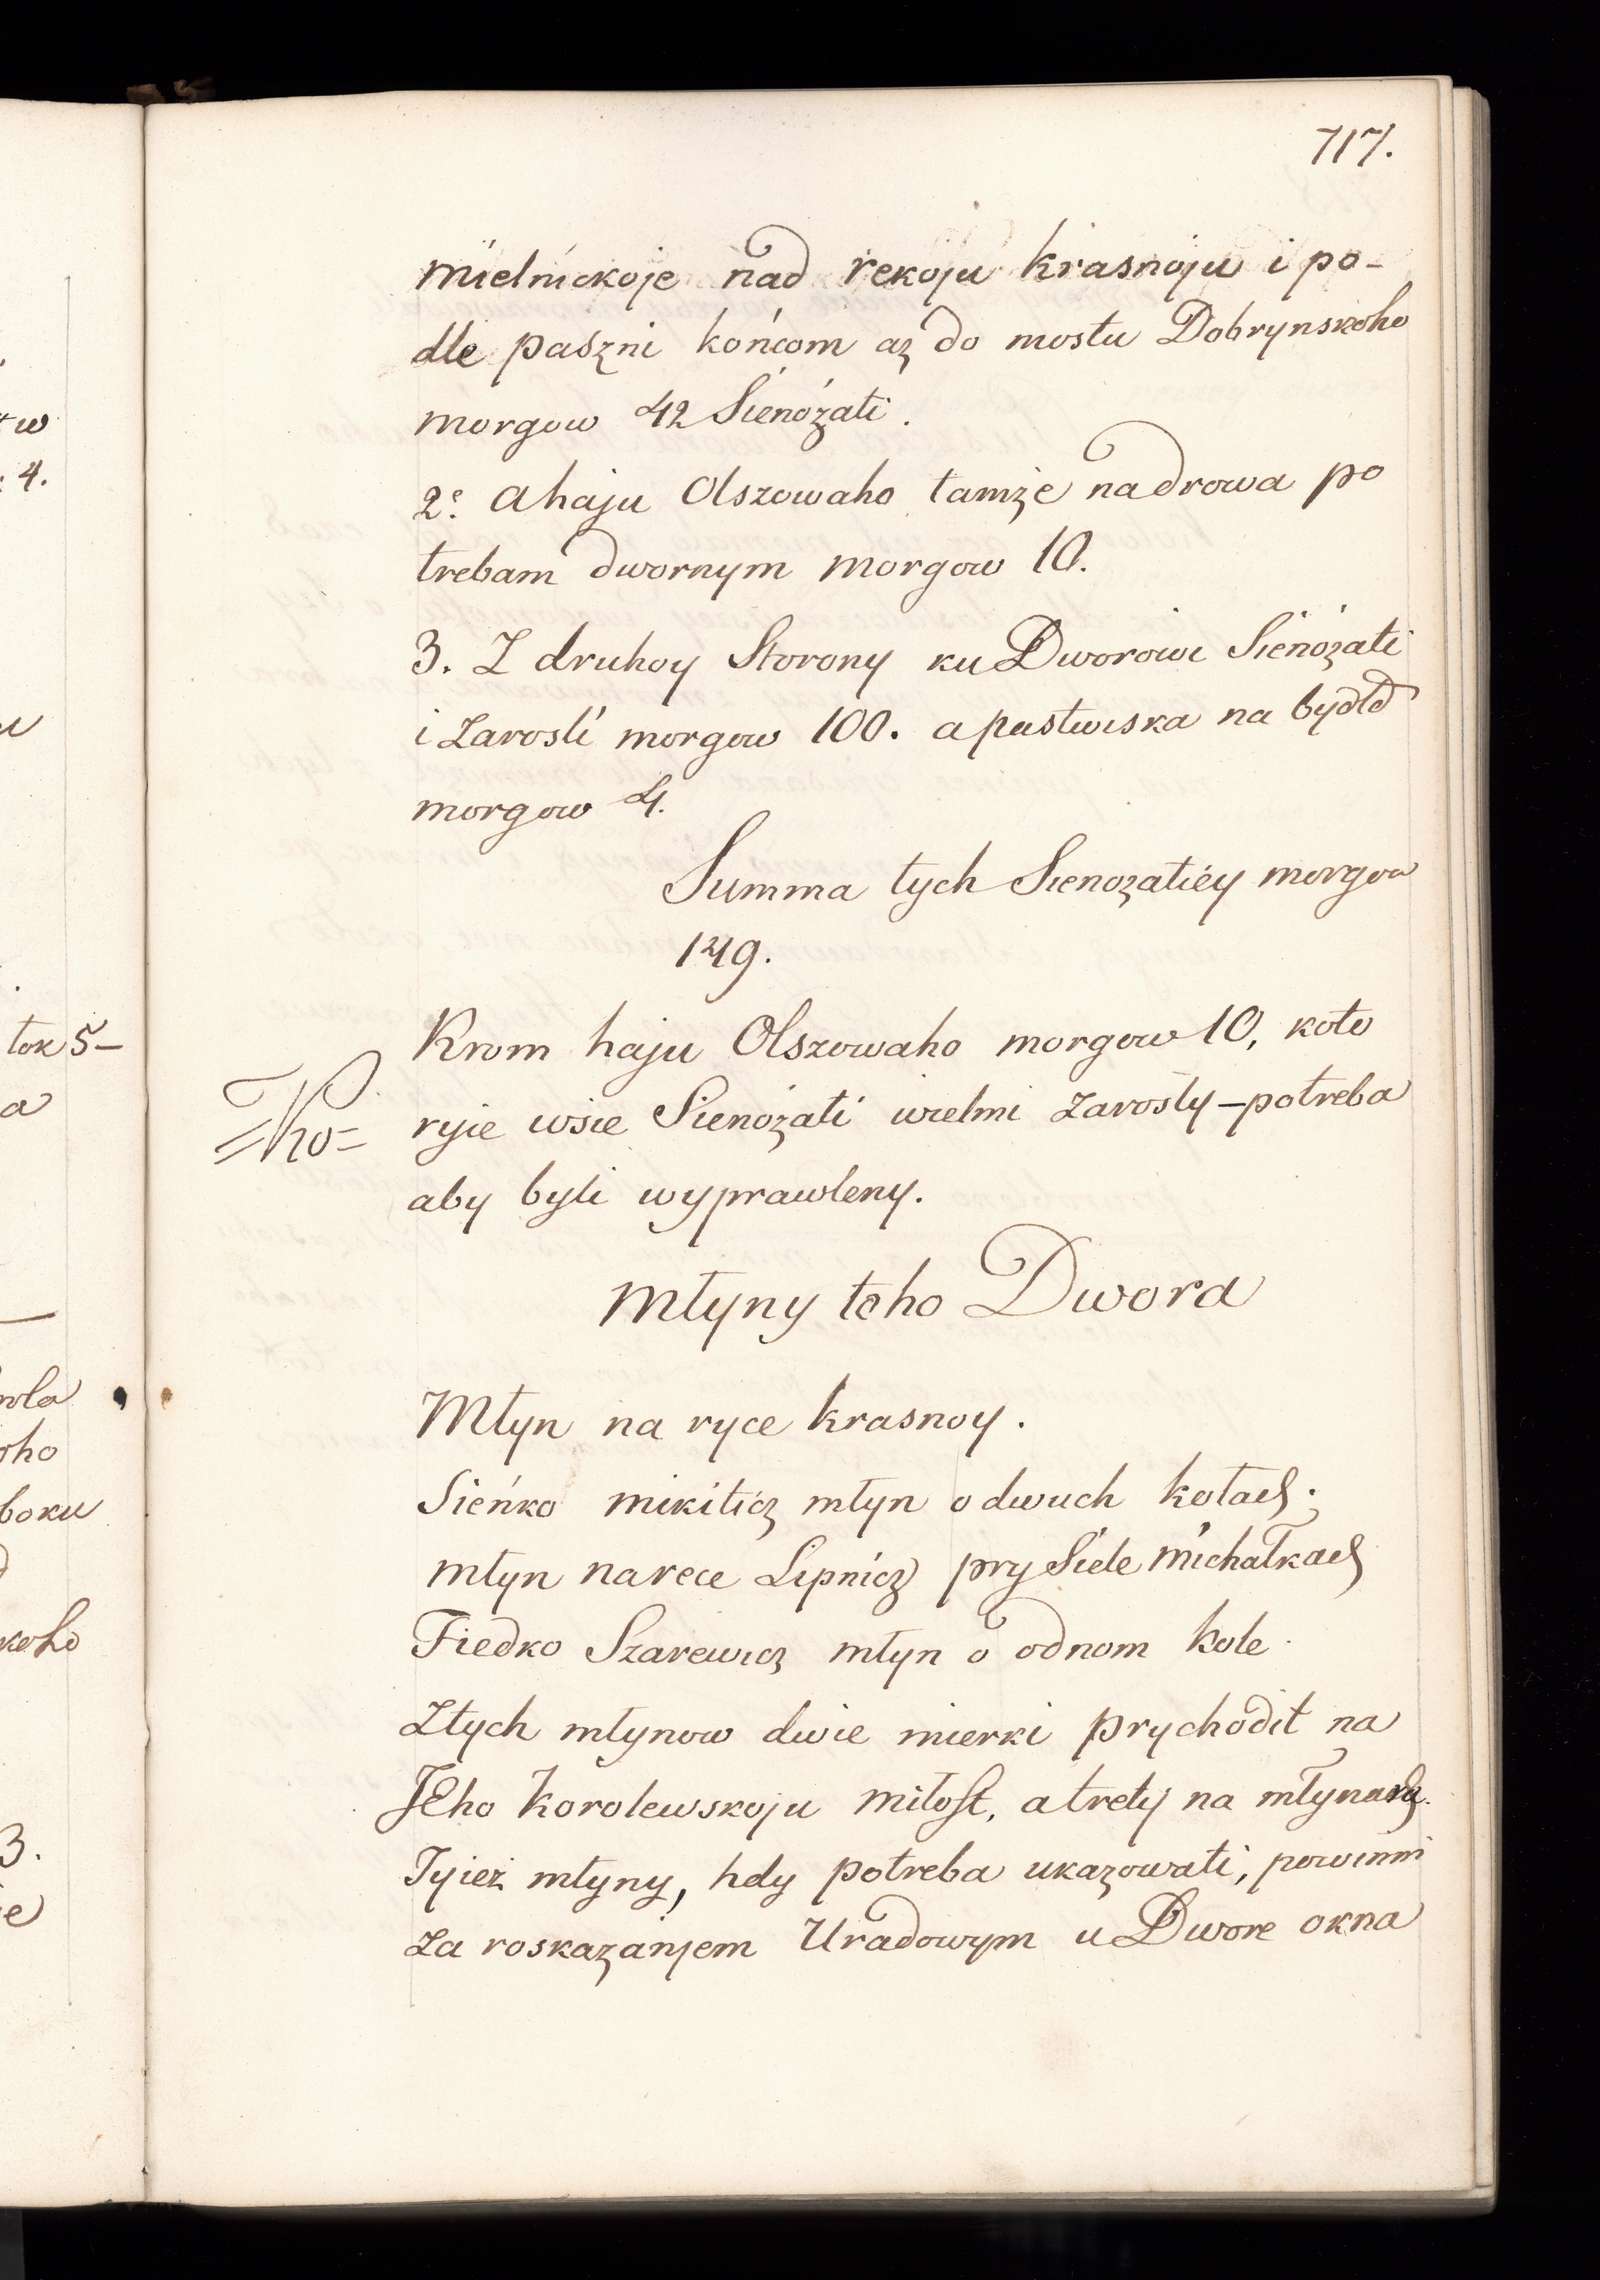 717.
mielnickoje nad rekoju krasnoju i po-
dle paszni końcom aż do mostu Dobrynskoho
morgow 42 Sienożati.
2e. A haju Olszowaho tamże na drowa po
trebam dwornym morgow 10.
3. Z druhoy Storony ku Dworowi Sienożati
i Zarosli morgow 100. a pastwiska na bydło
morgow 4.
Summa tych Sienożatiey morgow
149.
Krom haju Olszowaho morgow 10, koto
ryie wsie Sienożati wielmi zarosly - potreba
aby byli wyprawleny.
Młyny toho Dwora
Młyn na ryce Krasnoy.
Sieńko mikiticz młyn o dwuch kołach.
młyn na rece Lipnicz pry Siele michałkach
Fiedko Szarewicz młyn o odnom kole.
Z tych młynow dwie mierki prychodit na
JEho Korolewskoju miłost, a trety na młynara.
Tyież młyny, hdy potreba ukazowati, powinni
za roskazanjem Uradowym u Dwore okna
w
4.
u
tok 5-
a
wla
oho
boku
koho
3.
ie